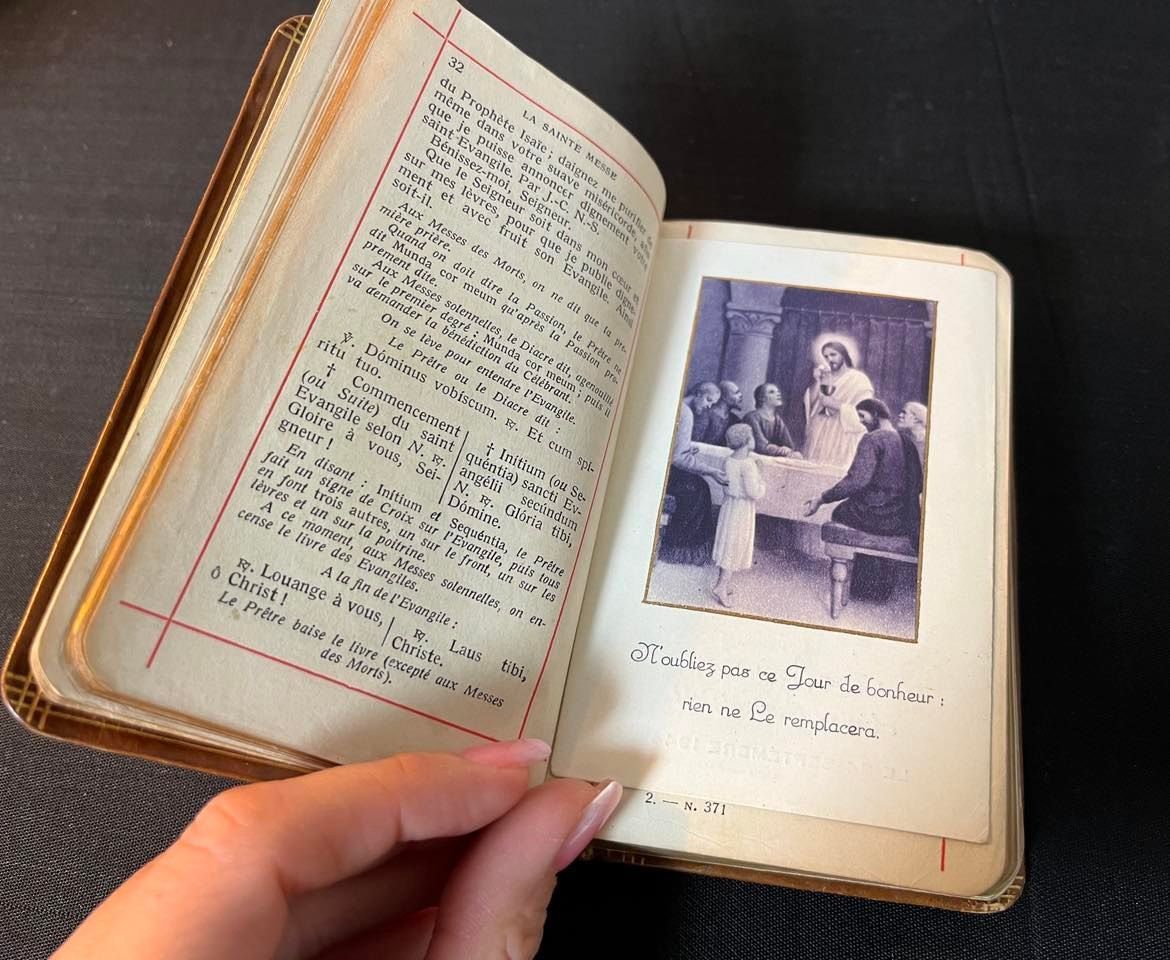 32
LA SAINTE MESSE
du Prophète Isaïe ; daignez me purifier de
même dans votre suave miséricorde, afin
que je puisse annoncer dignement votre
saint Evangile. Par J.-C. N.-S.
Bénissez-moi, Seigneur.
Que le Seigneur soit dans mon cœur et
sur mes lèvres, pour que je publie digne-
ment et avec fruit son Evangile. Ainsi
soit-il.
Aux Messes des Morts, on ne dit que la pre-
mière prière.
Quand on doit dire la Passion, le Prêtre ne
dit Munda cor meum qu'après la Passion pro-
prement dite.
Aux Messes solennelles, le Diacre dit, agenouillé
sur le premier degré : Munda cor meum ; puis il
va demander la bénédiction du Célébrant.
On se lève pour entendre l'Evangile.
Le Prêtre ou le Diacre dit :
℣. Dóminus vobiscum. ℟. Et cum spí-
ritu tuo.
† Commencement
(ou Suite) du saint
Evangile selon N. ℟.
Gloire à vous, Sei-
gneur !
† Inítium (ou Se-
quéntia) sancti Ev-
angélii secúndum
N. ℟. Glória tibi,
Dómine.
En disant : Inítium et Sequéntia, le Prêtre
fait un signe de Croix sur l'Evangile, puis tous
en font trois autres, un sur le front, un sur les
lèvres et un sur la poitrine.
A ce moment, aux Messes solennelles, on en-
cense le livre des Evangiles.
A la fin de l'Evangile :
℟. Louange à vous,
ô Christ !
℟. Laus tibi,
Christe.
Le Prêtre baise le livre (excepté aux Messes
des Morts).
N'oubliez pas ce Jour de bonheur :
rien ne Le remplacera.
2. — N. 371